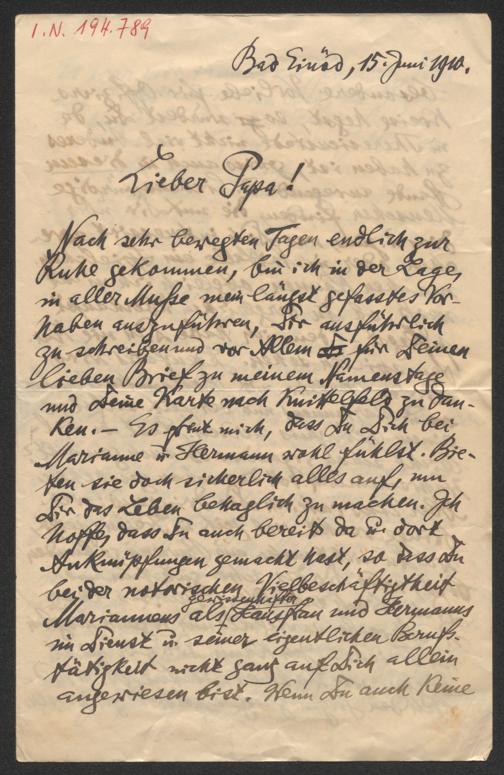 I.N. 194.789
Bad Einöd, 15. Juni 1910.
Lieber Papa!
Nach sehr bewegten Tagen endlich zur
Ruhe gekommen, bin ich in der Lage,
in aller Muße mein längst gefasstes Vor-
haben auszuführen, Dir ausführlich
zu schreiben und vor Allem für Deinen
lieben Brief zu meinem Namenstage
und Deine Karte nach Knittelfeld zu dan-
ken. – Es freut mich, dass Du Dich bei
Marianne u Hermann wohl fühlst. Bie-
ten sie doch sicherlich alles auf, um
Dir das Leben behaglich zu machen. Ich
hoffe, dass Du auch bereits da u dort
Anknüpfungen gemacht hast, so dass Du
bei der notorischen Vielbeschäftigtheit
Mariannens als gewissenhafter Hausfrau und Hermanns
im Dienst u seiner eigentlichen Berufs-
tätigkeit nicht ganz auf Dich allein
angewiesen bist. Wenn Du auch keine